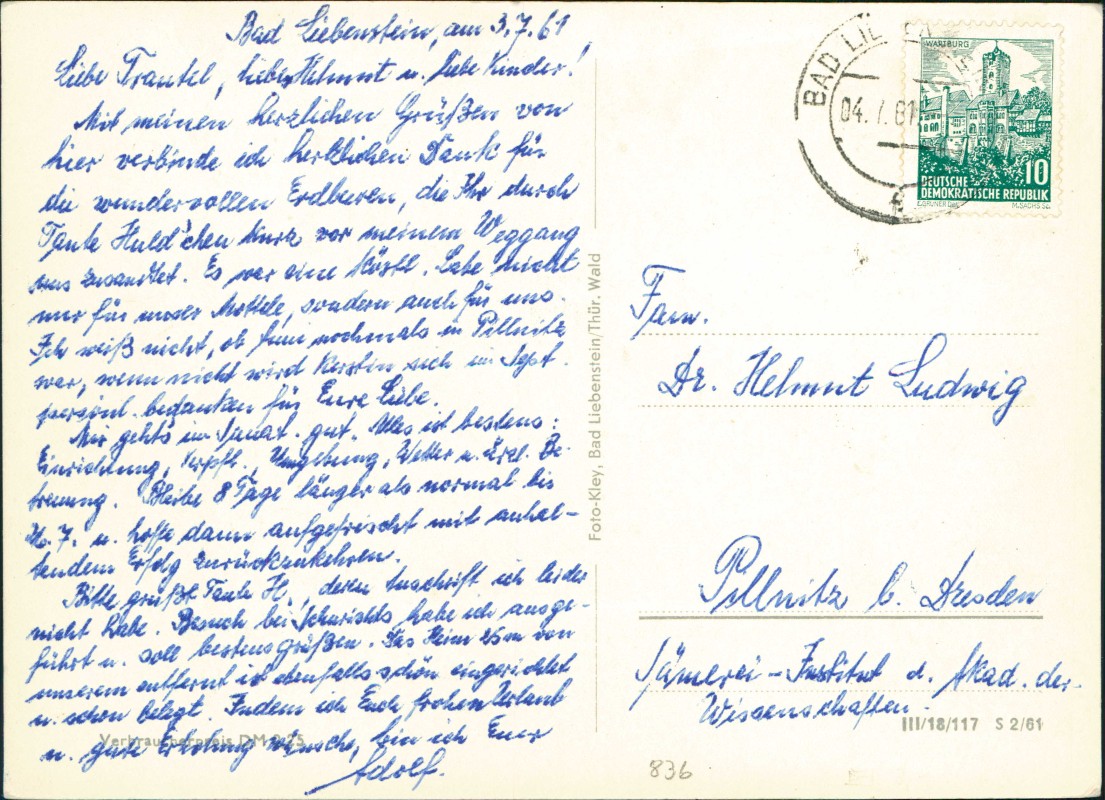 Bad Liebenstein, am 3.7.61
Liebe Trautel, lieber Helmut u. liebe Kinder!
Mit meinen herzlichen Grüßen von
hier verbinde ich herzlichen Dank für
die wundervollen Erdbeeren, die Ihr durch
Tante Huld'chen kurz vor meinem Weggang
uns zusandtet. Es war eine köstl. Labe nicht
nur für unser Mottele, sondern auch für uns.
Ich weiß nicht, ob nochmals in Pillnitz
war, wenn nicht wird Kerstin sich im Sept.
persönl. bedanken für Eure Liebe.
Mir gehts im Sanat. gut. Alles ist bestens:
Einrichtung, Verpfl., Umgebung, Wetter u. ärztl. Be-
treuung. Bleibe 8 Tage länger als normal bis
7. u. hoffe dann aufgefrischt mit anhal-
tendem Erfolg zurückzukehren.
Bitte grüßt Tante H., deren Anschrift ich leider
nicht habe. Besuch bei habe ich ausge-
führt u. soll bestens grüßen. Das Heim 25m von
unserem entfernt ist ebenfalls schön eingerichtet
u. schon belegt. Indem ich Euch frohen Urlaub
u. gute Erholung wünsche, bin ich Euer
Adolf.
Verbraucherpreis DM 0,25
Foto-Kley, Bad Liebenstein/Thür. Wald
BAD LIE EN
04. 7. 61
WARTBURG
10
DEUTSCHE
DEMOKRATISCHE REPUBLIK
E. GRUNER DEL. M. SACHS SC.
Fam.
Dr. Helmut Ludwig
Pillnitz b. Dresden
Sämerei-Institut d. Akad. der
Wissenschaften.
III/18/117 S 2/61
836